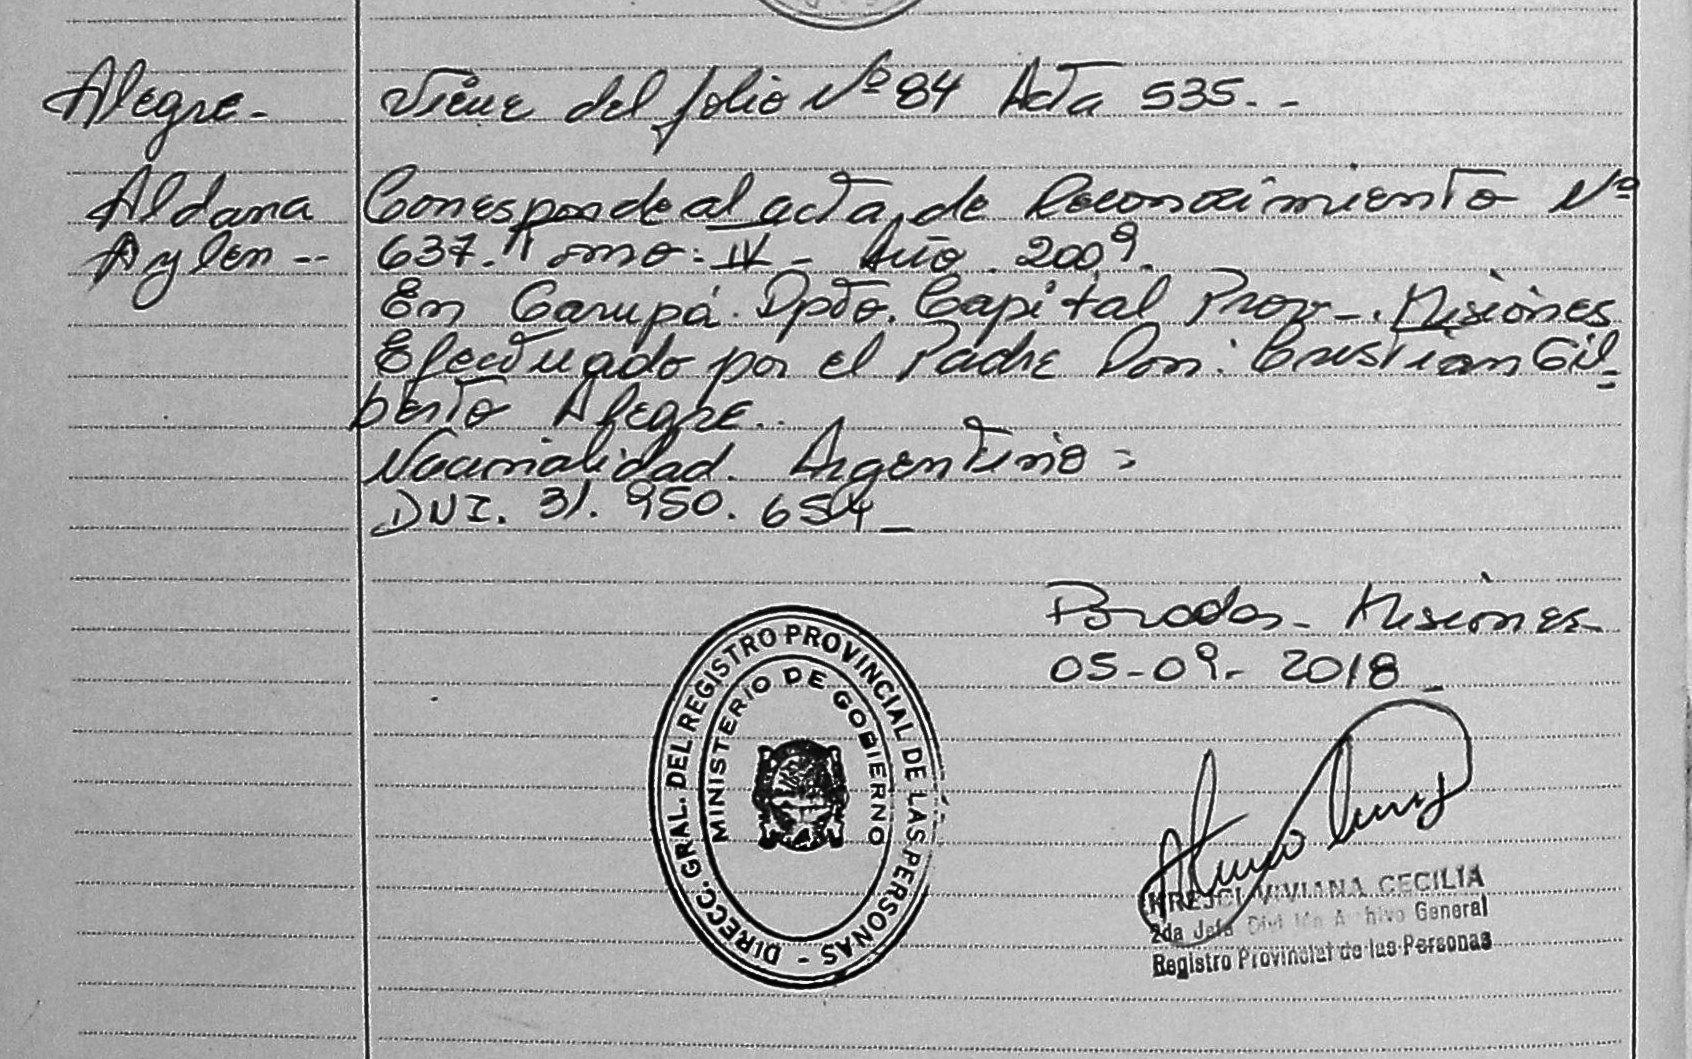 Alegre - Viene del folio Nº 84 Acta 535. -
Aldana Corresponde al acta de Reconocimiento Nº
Aylen -- 637. Tomo: IV - Año. 2009.
En Garupá. Dpto. Capital Prov-. Misiones
Efectuado por el Padre Don: Cristian Gil=
berto Alegre..
Nacionalidad. Argentino =
DNI. 31. 950. 654_
Posadas - Misiones
05-09- 2018_
DIRECC. GRAL. DEL REGISTRO PROVINCIAL DE LAS PERSONAS -
MINISTERIO DE GOBIERNO
KREJCI VIVIANA CECILIA
2da Jefa División Archivo General
Registro Provincial de las Personas